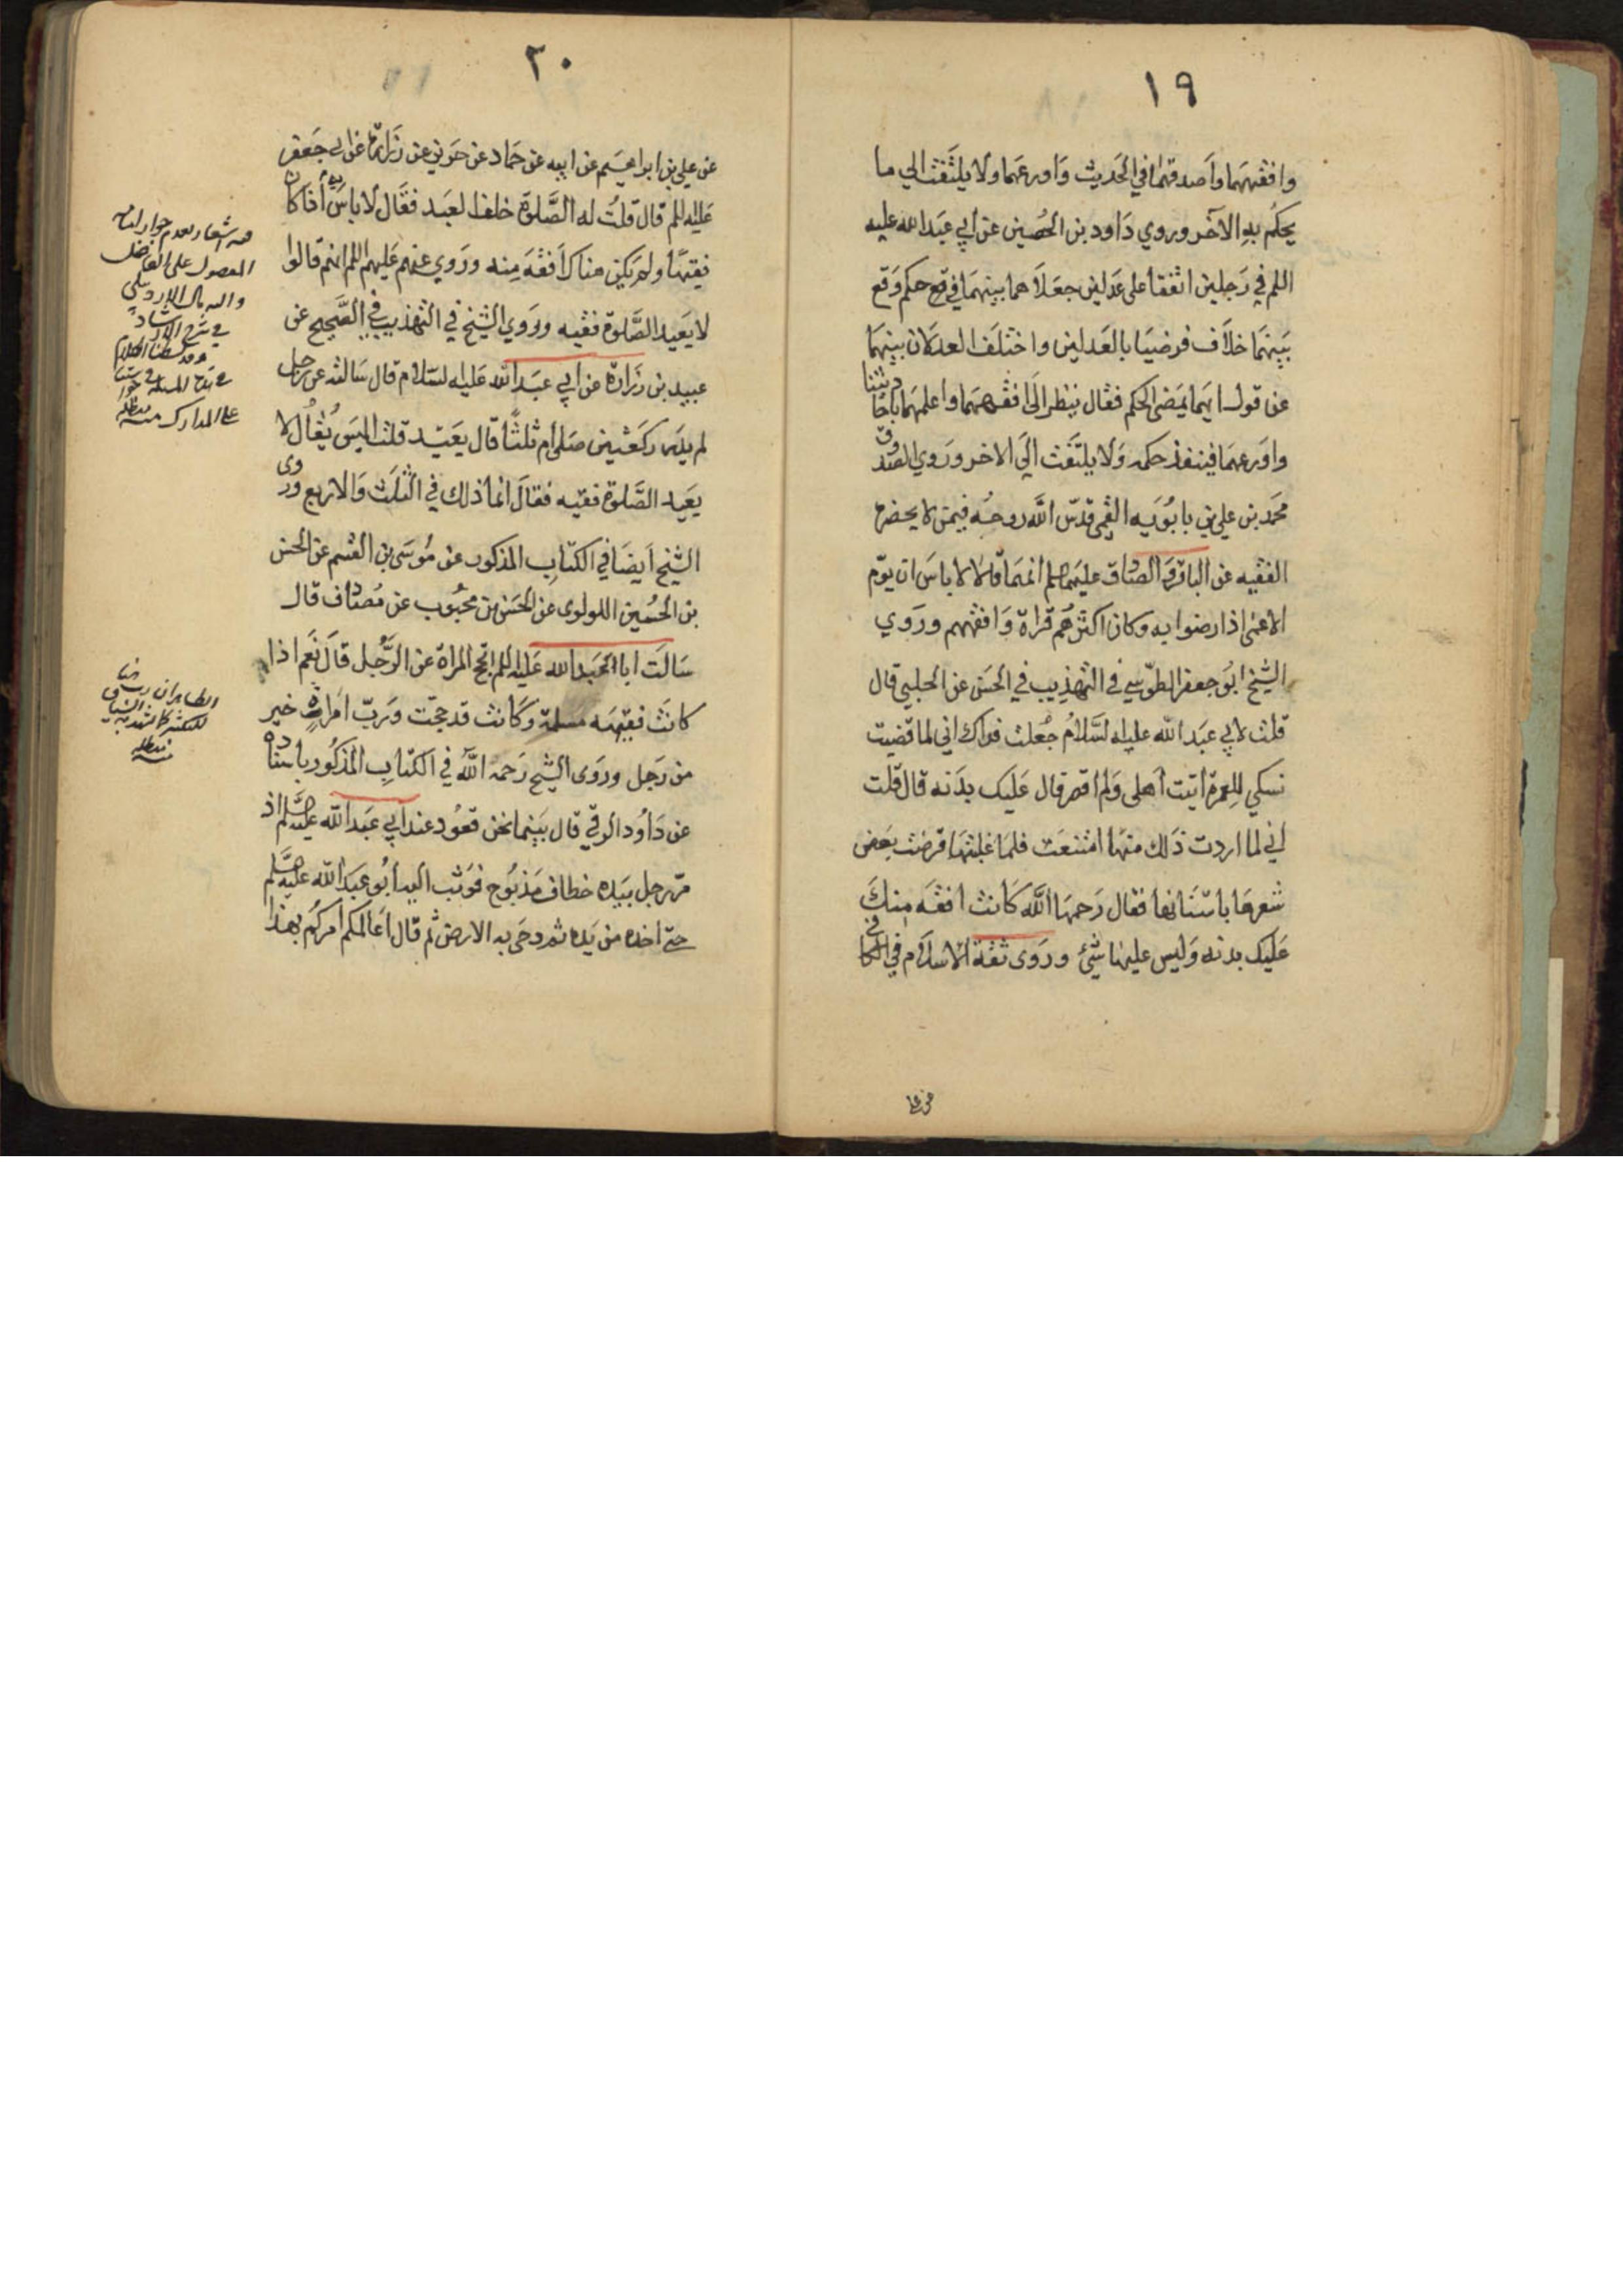 ١٩
وافقههما وأصدقهما في الحديث وأورعهما ولا يلتفت الي ما
يحكم به الآخر وروي داود بن الحصين عن أبي عبد الله عليه
اللم في رجلين اتفقا على عدلين جعلاهما بينهما في حكم وقع
بينهما خلاف فرضيا بالعدلين واختلف العدلان بينهما
عن قول ايهما يمضى الحكم فقال ينظر الى افقههما واعلمهما باحاديثنا
واورعهما فينفذ حكمه ولا يلتفت الي الاخر وروي الصدوق
محمد بن علي بن بابويه القمي قدس الله روحه فيمن لا يحضره
الفقيه عن الباقر والصادق عليهما انهما قالا لا باس ان يؤم
الاعمى اذا رضوا به وكان اكثرهم قراة وافقههم وروي
الشيخ ابو جعفر الطوسي في التهذيب في الحسن عن الحلبي قال
قلت لابي عبد الله عليه السلام جعلت فداك اني لما قضيت
نسكي للعمرة أتيت أهلي ولم أقصر قال عليك بدنه قال قلت
أني لما اردت ذلك منها امتنعت فلما غلبتها قرضت بعض
شعرها باسنانها فقال رحمها الله كانت افقه منك
عليك بدنه وليس عليها شئ وروى ثقة الاسلام في الكافي
عن علي
٢٠
عن علي بن ابراهيم عن ابيه عن حماد عن حريز عن زرارة عن ابي جعفر
عليه اللم قال قلت له الصلوة خلف العبد فقال لا باس به اذا كان
فقيها ولم يكن هناك أفقه منه وروي عنهم عليهم اللم انهم قالوا
لا يعيد الصلوة فقيه وروي الشيخ في التهذيب في الصحيح عن
عبيد بن زرارة عن أبي عبد الله عليه السلام قال سالته عن رجل
لم يدر ركعتين صلى أم ثلثا قال يعيد قلت اليس يقال لا
يعيد الصلوة فقيه فقال انما ذلك في الثلث والاربع وروى
الشيخ أيضا في الكتاب المذكور عن موسى بن القسم عن الحسن
بن الحسين اللولوى عن الحسن بن محبوب عن مصادف قال
سالت ابا عبد الله عليه اللم اتحج المراة عن الرجل قال نعم اذا
كانت فقيهه مسلمة وكانت قد حجت ورب امراة خير
من رجل وروى الشيخ رحمه الله في الكتاب المذكور باسناده
عن داود الرقي قال بينما نحن قعود عند أبي عبد الله عليه السلم اذ
مر رجل بيده خطاف مذبوح فوثب اليه أبو عبد الله عليه السلم
حتى اخذه من يده ثم دحى به الارض ثم قال اعالمكم امركم بهذا